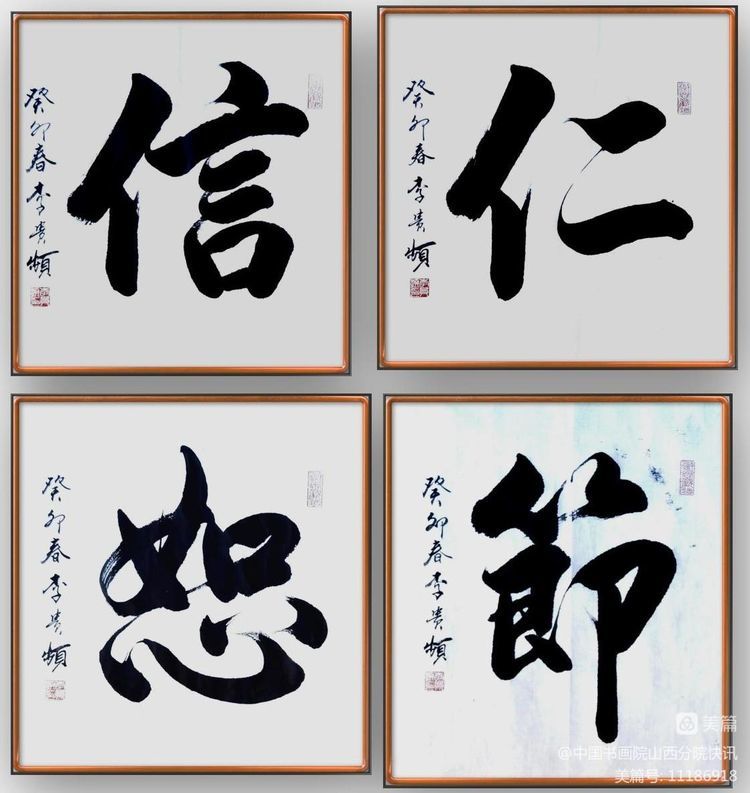 信
癸卯春李贵频
仁
癸卯春李贵频
恕
癸卯春李贵频
節
癸卯春李贵频
美篇
@中国书画院山西分院快讯
美篇号: 11186918